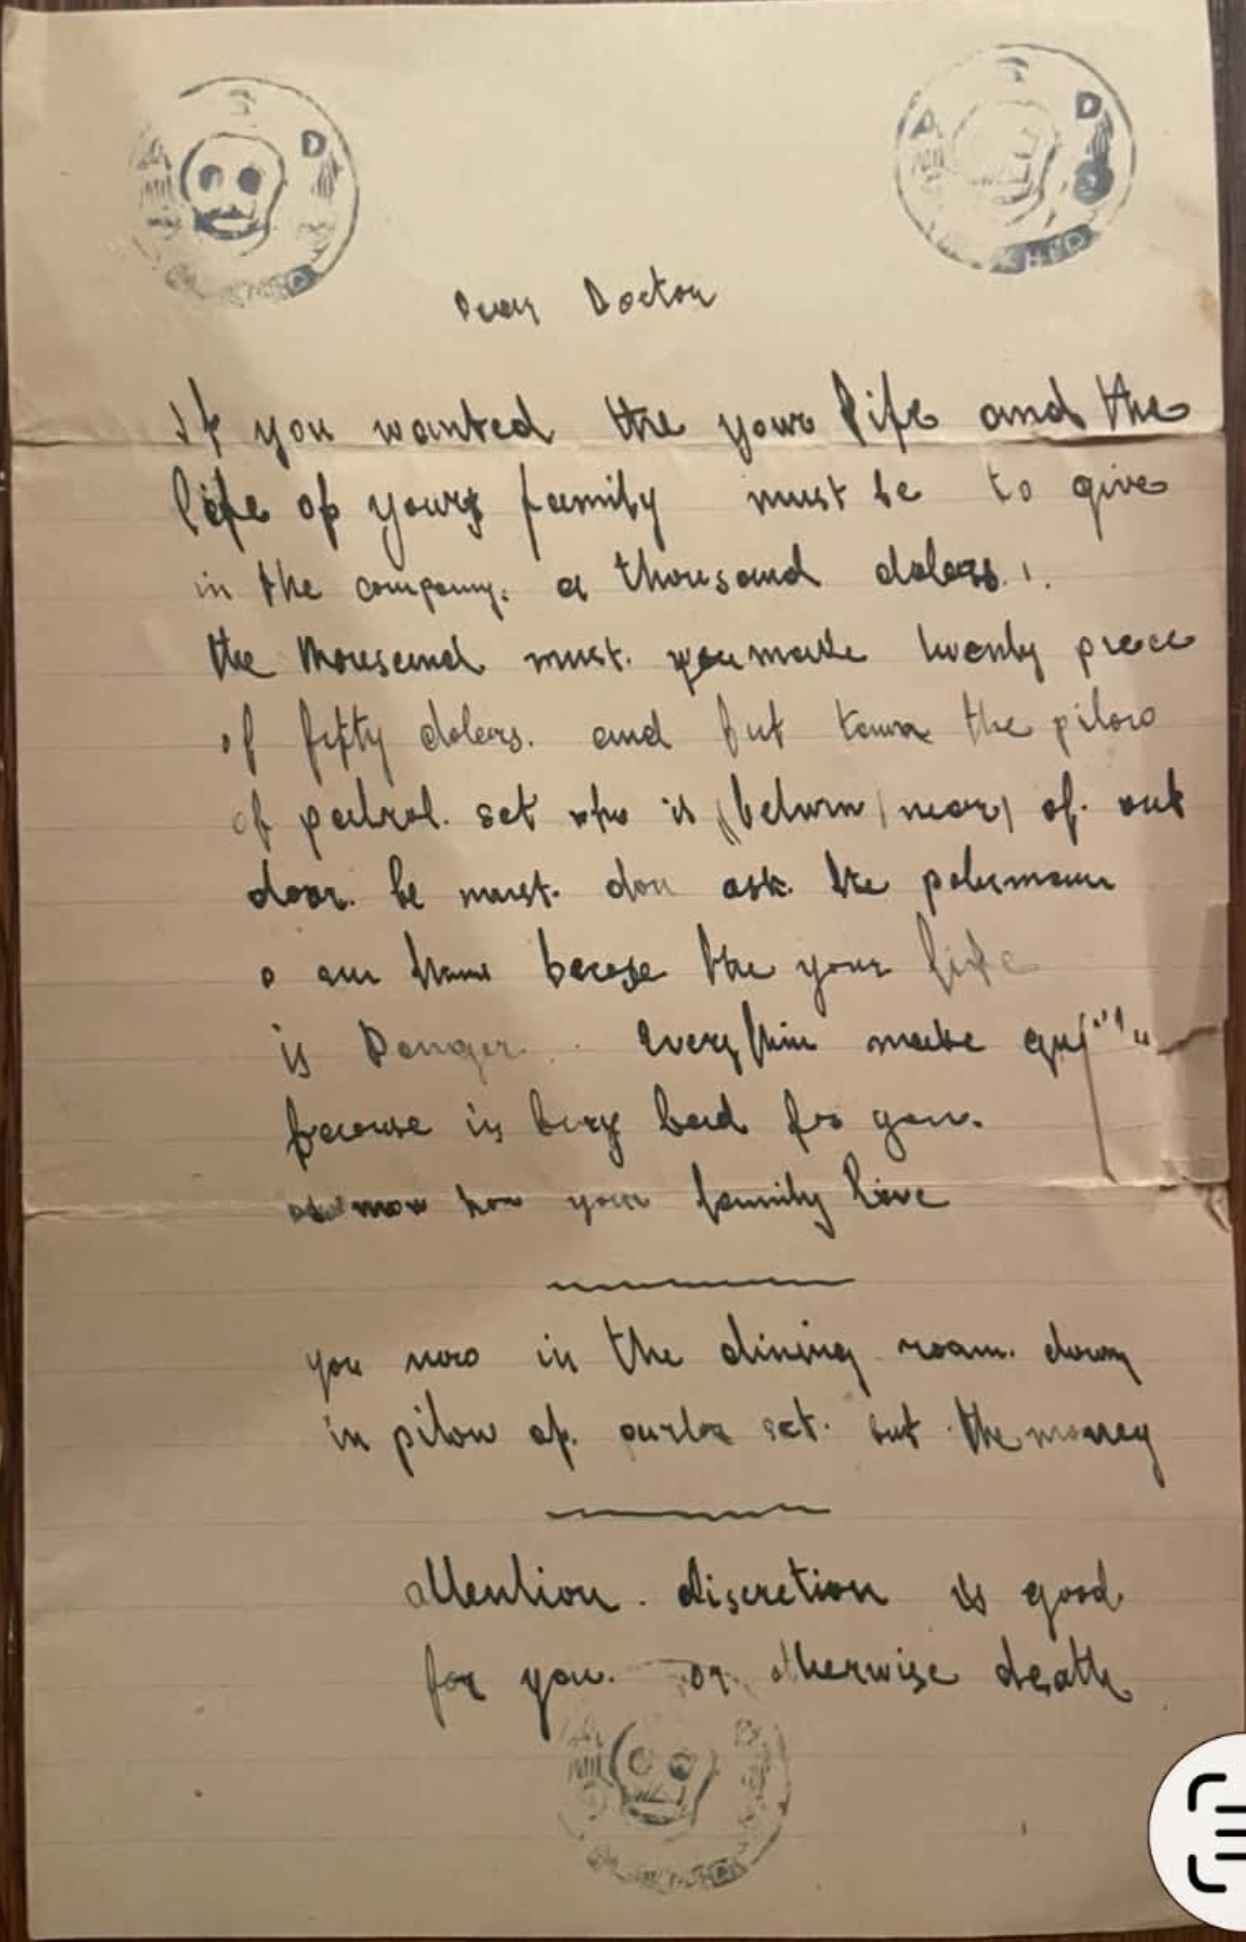 D
D
Dear Doctor
If you wanted the your life and the
life of yours family must be to give
in the company. a thousand dolars.
the thousand must. you make twenty piece
of fifty dolars. and put the pilow
of set who is (near) of out
door. be must. don ask. the
o becose the your life
is Danger. Every thin make
becouse is bery bad for you.
your family live
you now in the dining room. down
in pilow of. parlor set. but the money
attention. discretion is good
for you. or otherwise death